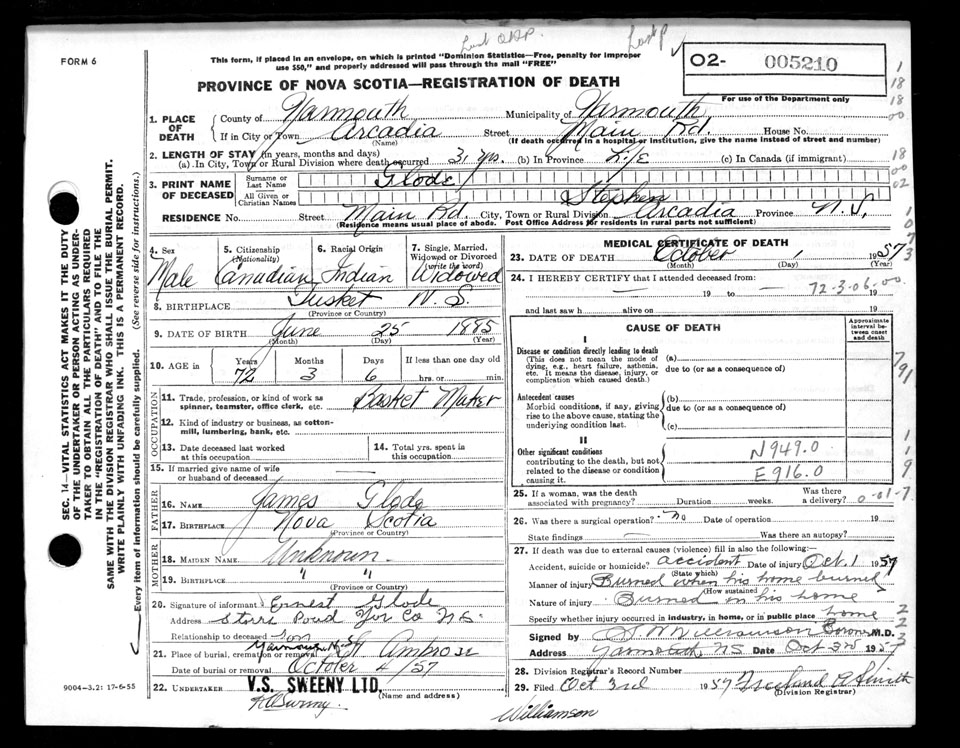 Last O.K.P.
Last P ✓
FORM 6
This form, if placed in an envelope, on which is printed "Dominion Statistics—Free, penalty for improper
use $50," and properly addressed will pass through the mail "FREE"
02- 005210
For use of the Department only
PROVINCE OF NOVA SCOTIA—REGISTRATION OF DEATH
1. PLACE OF DEATH
County of Yarmouth Municipality of Yarmouth
If in City or Town Arcadia Street Main Rd. House No.
(Name) (If death occurred in a hospital or institution, give the name instead of street and number)
2. LENGTH OF STAY (in years, months and days)
(a) In City, Town or Rural Division where death occurred 31 yrs. (b) In Province Life (c) In Canada (if immigrant)
3. PRINT NAME OF DECEASED
Surname or Last Name Glode
All Given or Christian Names Stephen
RESIDENCE No. Street Main Rd. City, Town or Rural Division Arcadia Province N.S.
(Residence means usual place of abode. Post Office Address for residents in rural parts not sufficient)
4. Sex Male
5. Citizenship (Nationality) Canadian
6. Racial Origin Indian
7. Single, Married, Widowed or Divorced (write the word) Widowed
8. BIRTHPLACE Tusket N.S.
(Province or Country)
9. DATE OF BIRTH June 25 1885
(Month) (Day) (Year)
10. AGE in Years Months Days If less than one day old
72 3 6 hrs. or min.
OCCUPATION
11. Trade, profession, or kind of work as spinner, teamster, office clerk, etc. Basket Maker
12. Kind of industry or business, as cotton-mill, lumbering, bank, etc.
13. Date deceased last worked at this occupation
14. Total yrs. spent in this occupation
15. If married give name of wife or husband of deceased —
FATHER
16. NAME James Glode
17. BIRTHPLACE Nova Scotia
(Province or Country)
MOTHER
18. MAIDEN NAME Unknown
19. BIRTHPLACE " "
(Province or Country)
20. Signature of informant Ernest Glode
Address Pond Yar Co N.S.
Relationship to deceased son
21. Place of burial, cremation or removal St. Ambrose
Date of burial or removal October 4/57
22. UNDERTAKER V.S. SWEENY LTD.
(Name and address)
MEDICAL CERTIFICATE OF DEATH
23. DATE OF DEATH October 1 1957
(Month) (Day) (Year)
24. I HEREBY CERTIFY that I attended deceased from:
— 19 to — 19
72-3-06-00
and last saw h alive on 19
CAUSE OF DEATH
Approximate interval between onset and death
I
Disease or condition directly leading to death
(This does not mean the mode of dying, e.g., heart failure, asthenia, etc. It means the disease, injury, or complication which caused death.)
(a)
due to (or as a consequence of)
Antecedent causes
Morbid conditions, if any, giving rise to the above cause, stating the underlying condition last.
(b)
due to (or as a consequence of)
(c)
II
Other significant conditions
contributing to the death, but not related to the disease or condition causing it.
N949.0
E916.0
25. If a woman, was the death associated with pregnancy? Duration weeks. Was there a delivery? 0-01-7
26. Was there a surgical operation? no Date of operation 19
State findings — Was there an autopsy?
27. If death was due to external causes (violence) fill in also the following:—
Accident, suicide or homicide? accident Date of injury Oct. 1 1957
(State which)
Manner of injury Burned when his home burned
(How sustained)
Nature of injury Burned in his home
Specify whether injury occurred in industry, in home, or in public place home
Signed by Coroner M.D.
Address Yarmouth, NS Date Oct 3rd 1957
28. Division Registrar's Record Number
29. Filed Oct 3rd 1957 Smith
(Division Registrar)
Williamson
SEC. 14—VITAL STATISTICS ACT MAKES IT THE DUTY
OF THE UNDERTAKER OR PERSON ACTING AS UNDER-
TAKER TO OBTAIN ALL THE PARTICULARS REQUIRED
IN THE "REGISTRATION OF DEATH" AND TO FILE THE
SAME WITH THE DIVISION REGISTRAR WHO SHALL ISSUE THE BURIAL PERMIT.
WRITE PLAINLY WITH UNFADING INK. THIS IS A PERMANENT RECORD.
Every item of information should be carefully supplied. (See reverse side for instructions.)
9004-3.2: 17-6-55
1
18
18
00
18
00
02
1
0
7
3
791
1
1
9
2
2
2
3